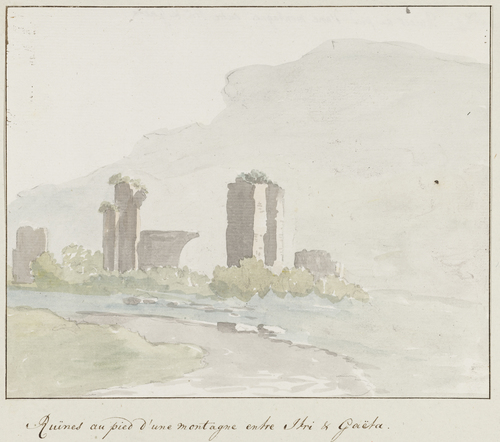 Ruïnes au pied d'une montagne entre Itri & Gaëta.